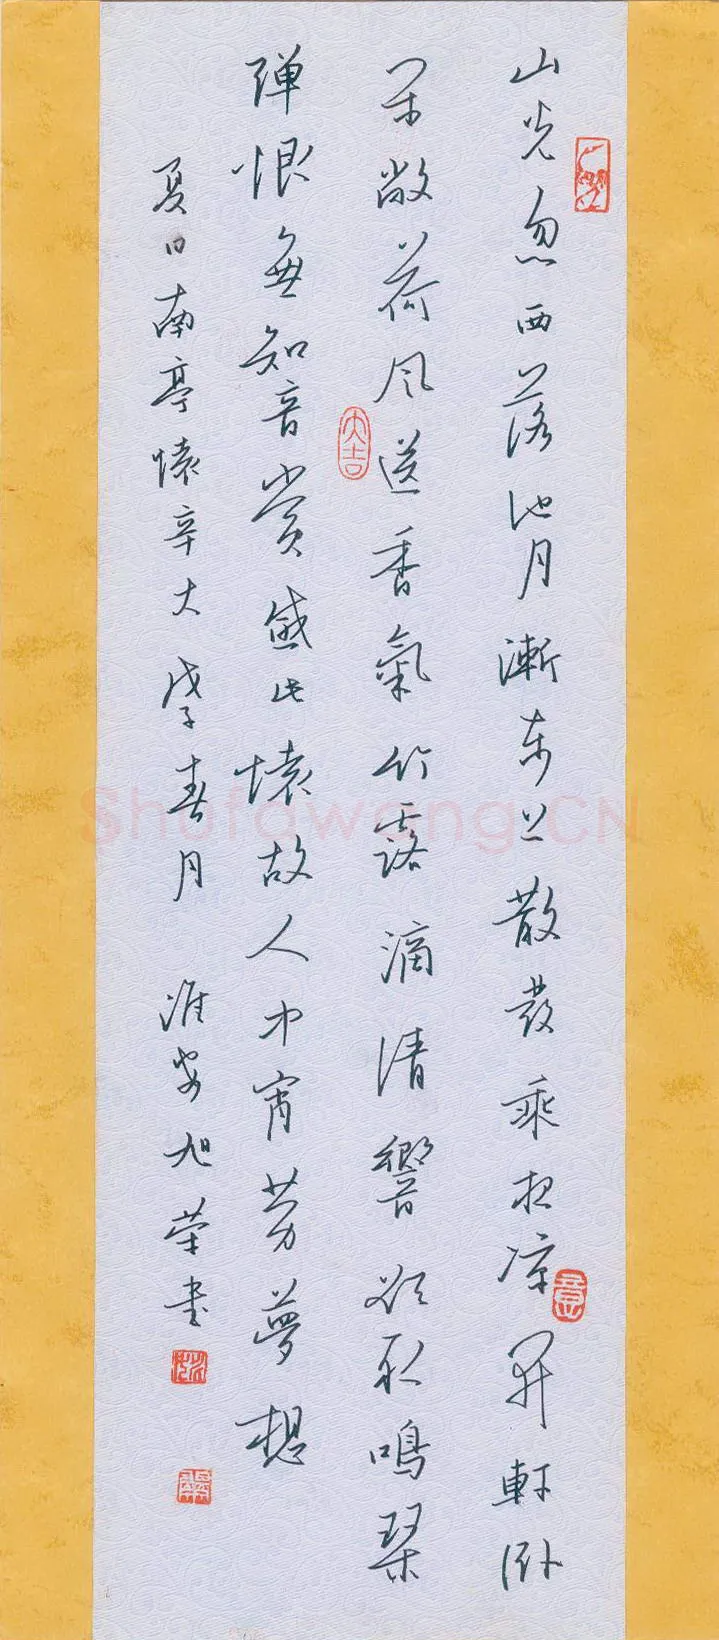 山光忽西落池月漸东上散發乘夜凉開軒卧
閑敞荷风送香氣竹露滴清響欲取鳴琴
弹恨無知音赏感此懷故人中宵劳夢想
夏日南亭懷辛大 戊子春月 淮安旭荣書
大吉
Shufawang.CN